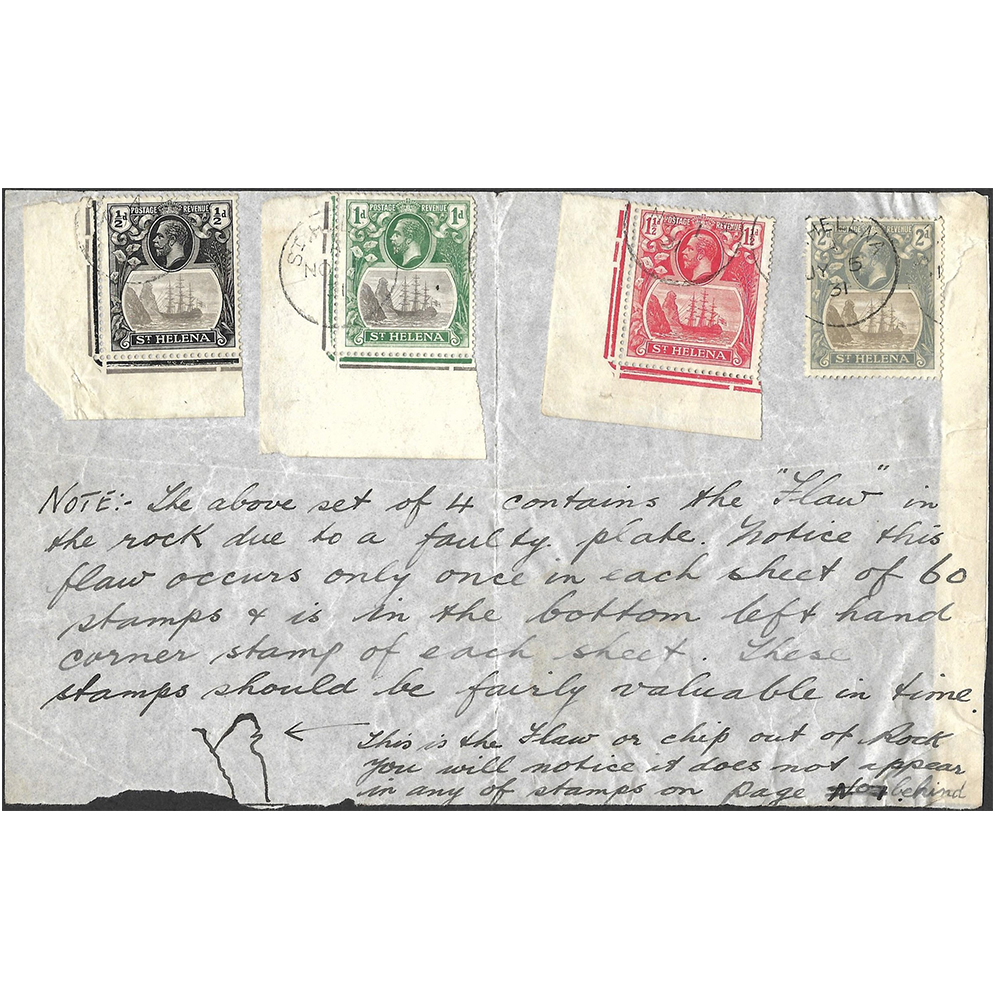 ½d POSTAGE REVENUE ½d
ST HELENA
1d POSTAGE REVENUE 1d
ST HELENA
1½d POSTAGE 1½d
ST HELENA
2d 2d
ST HELENA
ST. HEL
NO
HELENA
JY 5
31
NOTE:- The above set of 4 contains the "Flaw" in
the rock due to a faulty. plate. Notice this
flaw occurs only once in each sheet of 60
stamps & is in the bottom left hand
corner stamp of each sheet. These
stamps should be fairly valuable in time.
This is the Flaw or chip out of Rock
You will notice it does not appear
in any of stamps on page No 1. behind